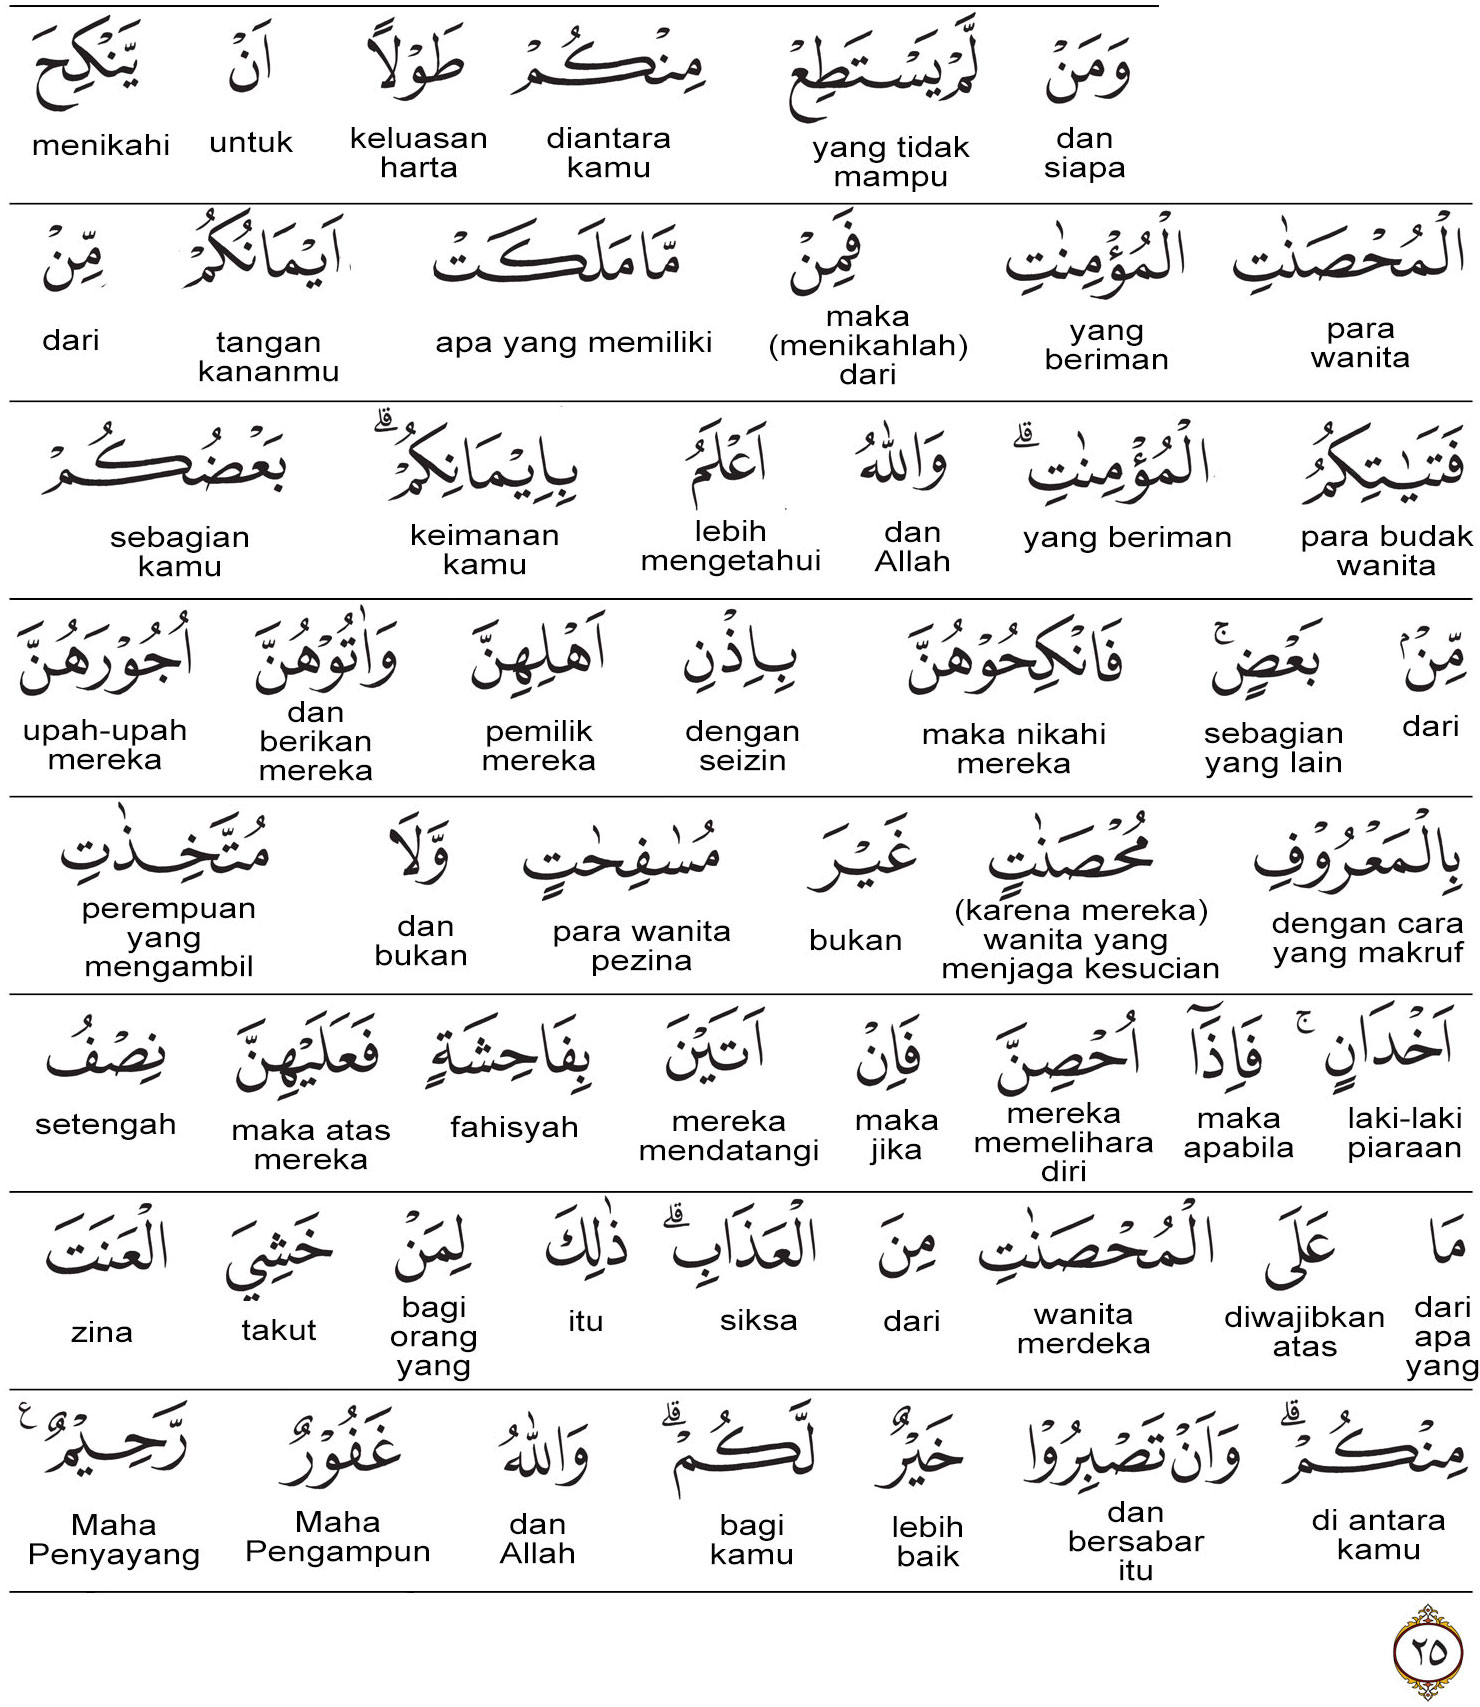 وَمَنْ لَّمْ يَسْتَطِعْ مِنْكُمْ طَوْلًا اَنْ يَّنْكِحَ
dan siapa yang tidak mampu diantara kamu keluasan harta untuk menikahi
الْمُحْصَنٰتِ الْمُؤْمِنٰتِ فَمِنْ مَّا مَلَكَتْ اَيْمَانُكُمْ مِّنْ
para wanita yang beriman maka (menikahlah) dari apa yang memiliki tangan kananmu dari
فَتَيٰتِكُمُ الْمُؤْمِنٰتِۗ وَاللّٰهُ اَعْلَمُ بِاِيْمَانِكُمْۗ بَعْضُكُمْ
para budak wanita yang beriman dan Allah lebih mengetahui keimanan kamu sebagian kamu
مِّنْۢ بَعْضٍۚ فَانْكِحُوْهُنَّ بِاِذْنِ اَهْلِهِنَّ وَاٰتُوْهُنَّ اُجُوْرَهُنَّ
dari sebagian yang lain maka nikahi mereka dengan seizin pemilik mereka dan berikan mereka upah-upah mereka
بِالْمَعْرُوْفِ مُحْصَنٰتٍ غَيْرَ مُسٰفِحٰتٍ وَّلَا مُتَّخِذٰتِ
dengan cara yang makruf (karena mereka) wanita yang menjaga kesucian bukan para wanita pezina dan bukan perempuan yang mengambil
اَخْدَانٍۚ فَاِذَآ اُحْصِنَّ فَاِنْ اَتَيْنَ بِفَاحِشَةٍ فَعَلَيْهِنَّ نِصْفُ
laki-laki piaraan maka apabila mereka memelihara diri maka jika mereka mendatangi fahisyah maka atas mereka setengah
مَا عَلَى الْمُحْصَنٰتِ مِنَ الْعَذَابِۗ ذٰلِكَ لِمَنْ خَشِيَ الْعَنَتَ
dari apa yang diwajibkan atas wanita merdeka dari siksa itu bagi orang yang takut zina
مِنْكُمْۗ وَاَنْ تَصْبِرُوْا خَيْرٌ لَّكُمْۗ وَاللّٰهُ غَفُوْرٌ رَّحِيْمٌ ࣖ
di antara kamu dan bersabar itu lebih baik bagi kamu dan Allah Maha Pengampun Maha Penyayang
٢٥